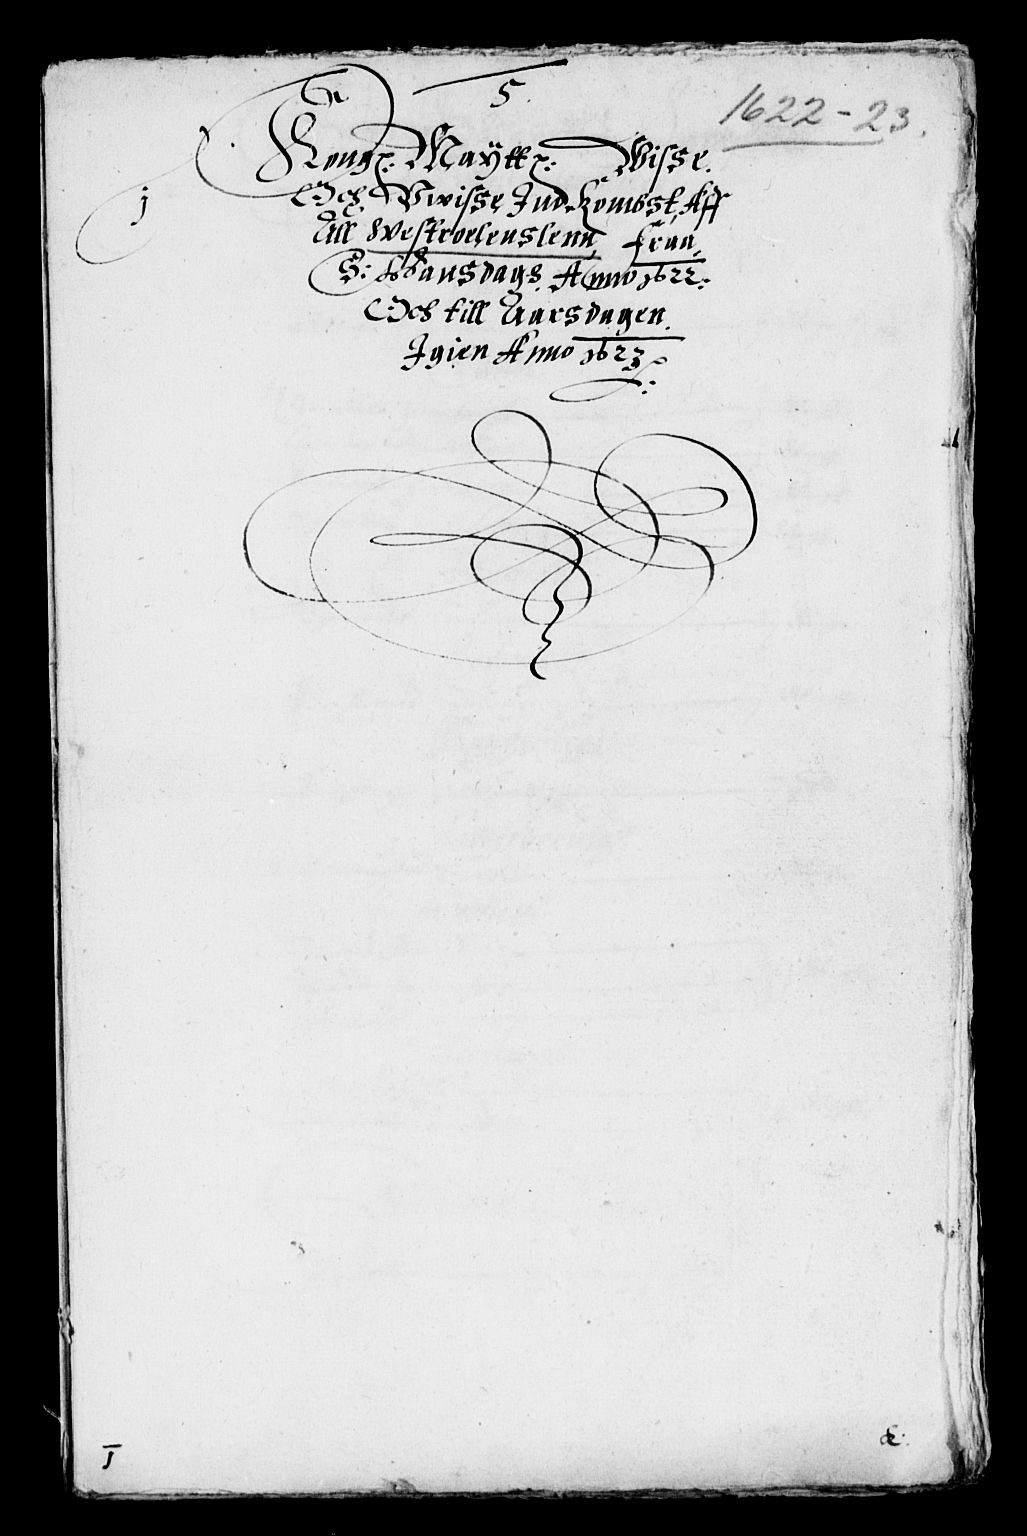 5.
1622-23.
Kong: Maÿtt: Wisse
Och Vwisse Indkombst Aff
All Westeroelenslenn, fraa
S: Hansdags Anno 1622:
Och till Aarsdagen
Igien Anno 1623
j
I
&: